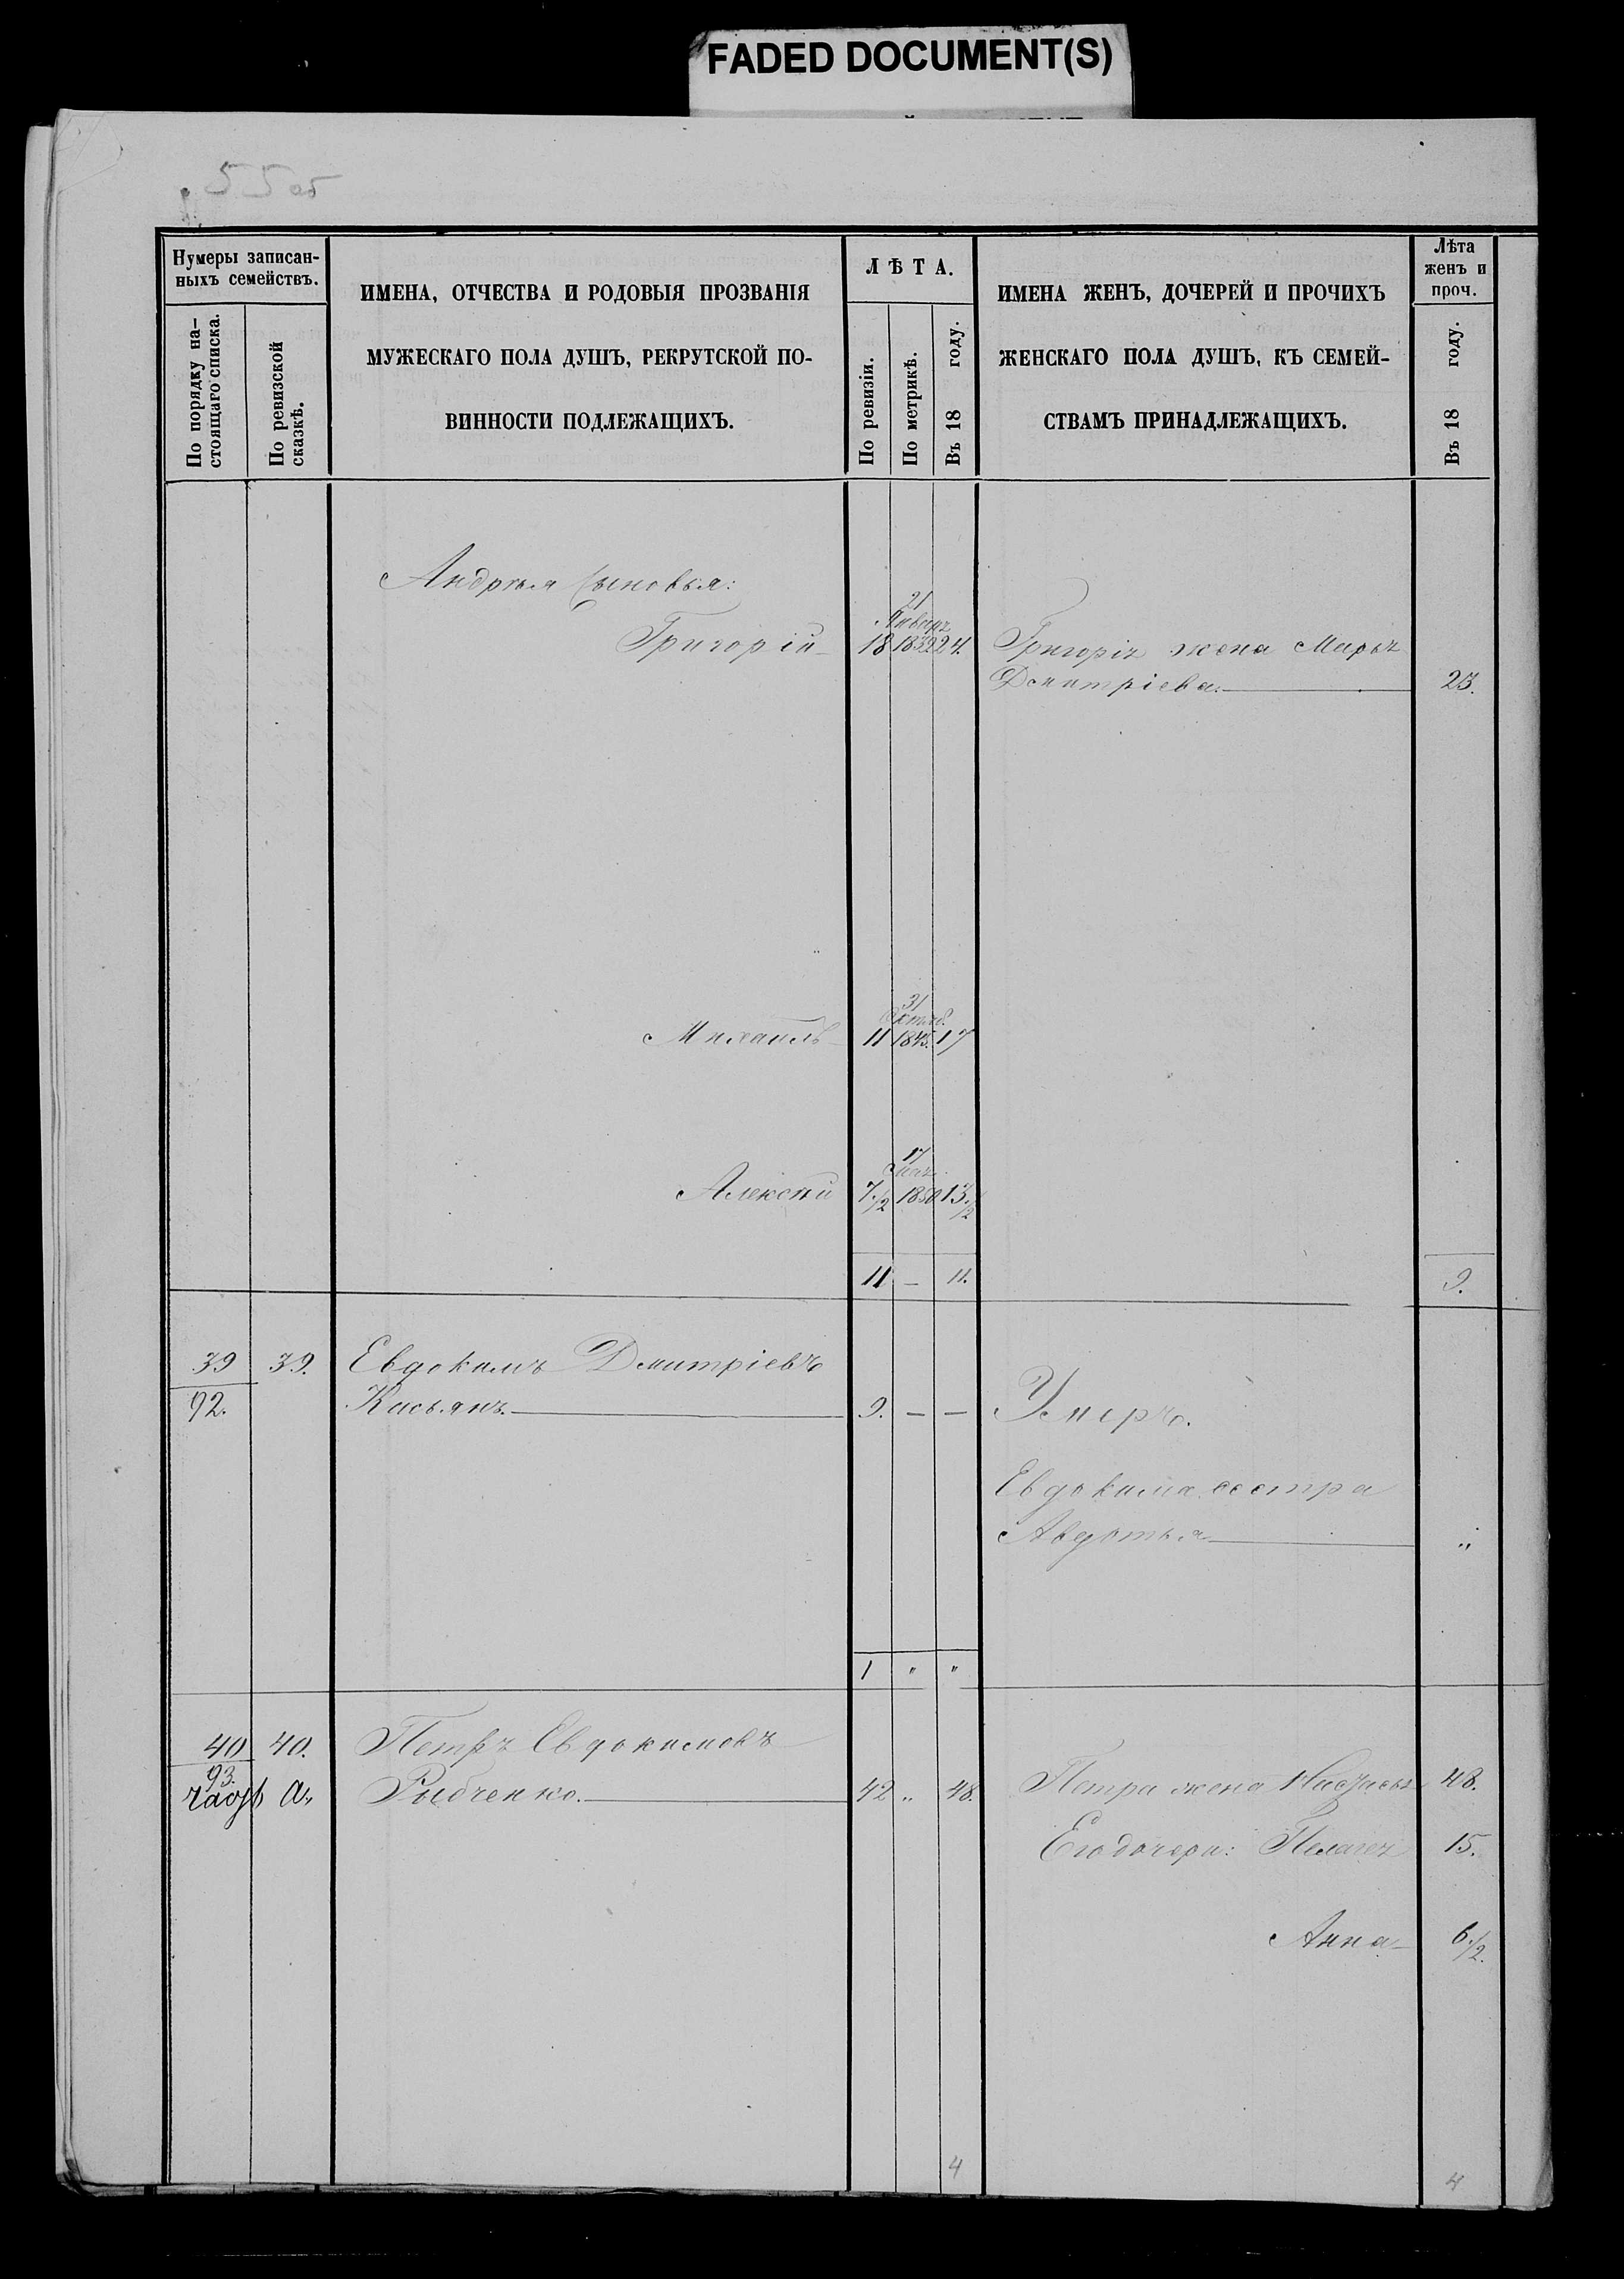 FADED DOCUMENT(S)
55 об
Нумеры записан-
ныхъ семействъ.
По порядку на-
стоящаго списка.
По ревизской
сказкѣ.
ИМЕНА, ОТЧЕСТВА И РОДОВЫЯ ПРОЗВАНІЯ
МУЖЕСКАГО ПОЛА ДУШЪ, РЕКРУТСКОЙ ПО-
ВИННОСТИ ПОДЛЕЖАЩИХЪ.
ЛѢТА.
По ревизіи.
По метрикѣ.
Въ 18 году.
ИМЕНА ЖЕНЪ, ДОЧЕРЕЙ И ПРОЧИХЪ
ЖЕНСКАГО ПОЛА ДУШЪ, КЪ СЕМЕЙ-
СТВАМЪ ПРИНАДЛЕЖАЩИХЪ.
Лѣта
женъ и
проч.
Въ 18 году.
Андрѣя Сыновья:
21
Январ
Григорій 18 1839 24. Григорія жена Марья
Дмитріева. 23.
31
Октяб.
Михаилъ 11 1845. 17
17
Алексѣй 7 1/2 1850 13 1/2
11 — 11. 9.
39 39. Евдокимъ Дмитріевъ
92. Касьянъ. 9. — — Умеръ.
Евдокима сестра
Авдотья "
1 " "
40 40. Петръ Евдокимовъ
93.
а. Рыбченко. 42 " 48. Петра жена Настасья 48.
Его дочери: Пелагея 15.
Анна 6 1/2.
4 4